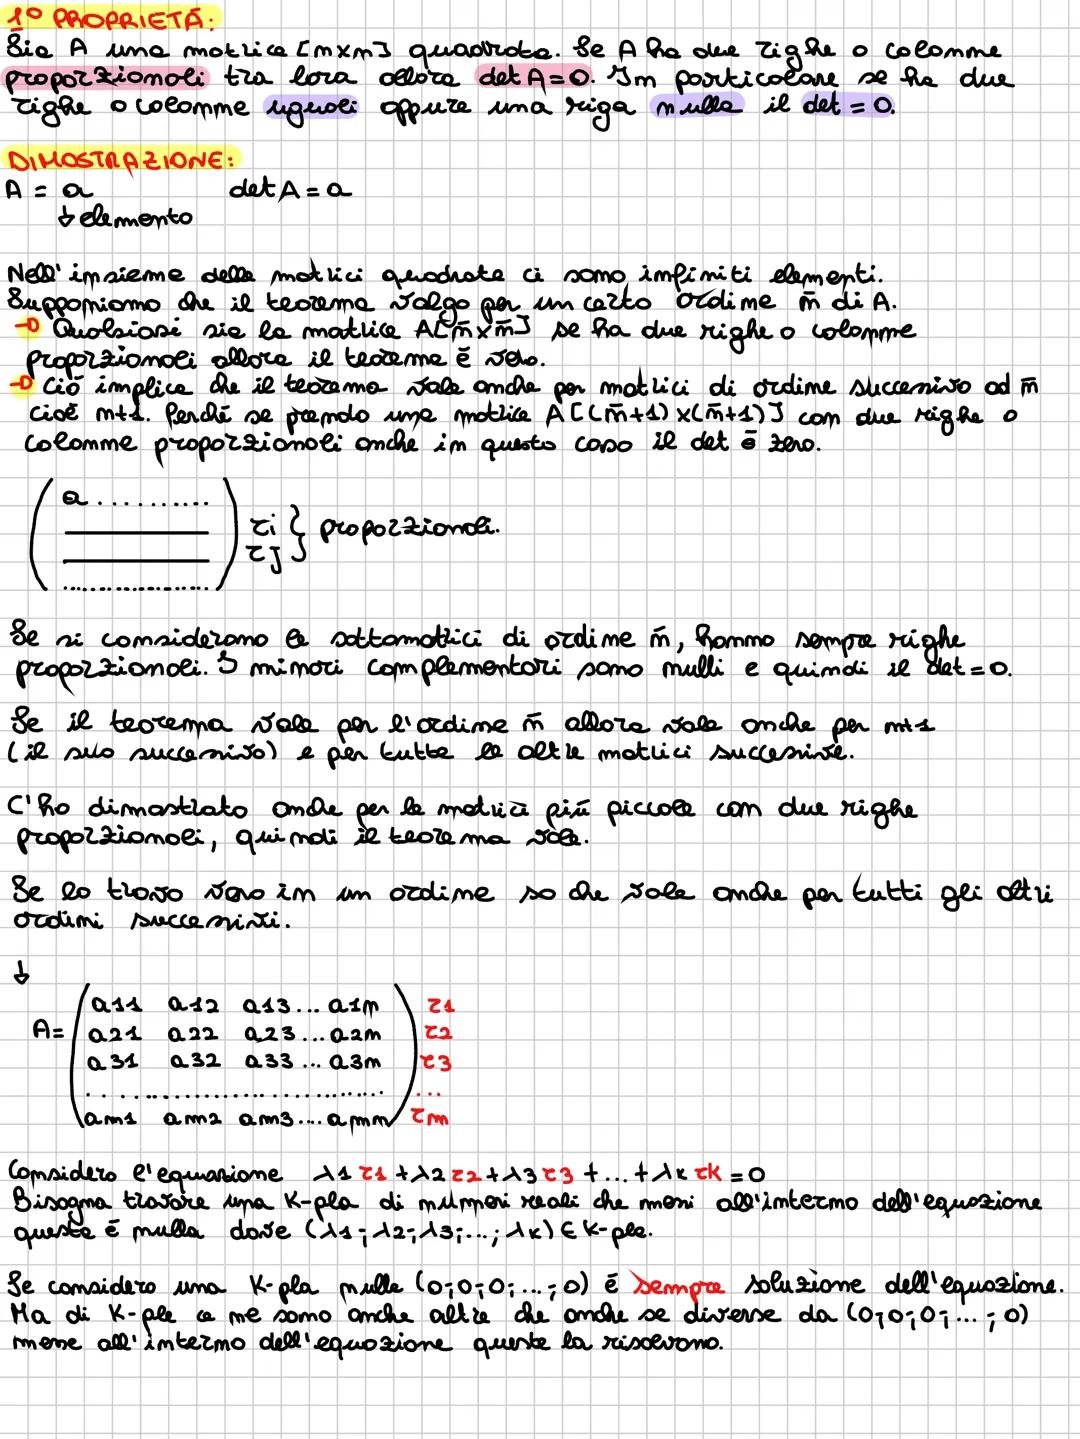 1° PROPRIETÁ:
Sia A una matrice [nxn] quadrata. Se A ha due righe o colonne
proporzionali tra loro allora det A=0. In particolare se ha due
righe o colonne uguali oppure una riga nulla il det = 0.
DIMOSTRAZIONE:
A = a det A = a
↓ elemento
Nell'insieme delle matrici quadrate ci sono infiniti elementi.
Supponiamo che il teorema valga per un certo ordine n̄ di A.
→ Qualsiasi sia la matrice A[n̄xn̄] se ha due righe o colonne
proporzionali allora il teorema é vero.
→ Ció implica che il teorema vale anche per matrici di ordine successivo ad n̄
cioé n+1. Perché se prendo una matrice A[(n̄+1)x(n̄+1)] con due righe o
colonne proporzionali anche in questo caso il det é zero.
a...........
ri } proporzionali.
rj
.....................
Se si considerano le sottomatrici di ordine n̄, hanno sempre righe
proporzionali. I minori complementari sono nulli e quindi il det=0.
Se il teorema vale per l'ordine n̄ allora vale anche per n+1
(il suo successivo) e per tutte le altre matrici successive.
C'ho dimostrato anche per le matrici piú piccole con due righe
proporzionali, quindi il teorema vale.
Se lo trovo vero in un ordine so che vale anche per tutti gli altri
ordini successivi.
↓
a11 a12 a13... a1n r1
A= a21 a22 a23... a2n r2
a31 a32 a33... a3n r3
................................ ...
an1 an2 an3... ann rn
Considero l'equazione λ1 r1 + λ2 r2 + λ3 r3 + ... + λk rk = 0
Bisogna trovare una K-pla di numeri reali che messi all'interno dell'equazione
questa é nulla dove (λ1;λ2;λ3;...;λk) ∈ K-ple.
Se considero una K-pla nulla (0;0;0;...;0) é sempre soluzione dell'equazione.
Ma di K-ple ce ne sono anche altre che anche se diverse da (0;0;0;...;0)
messe all'interno dell'equazione queste la risolvono.